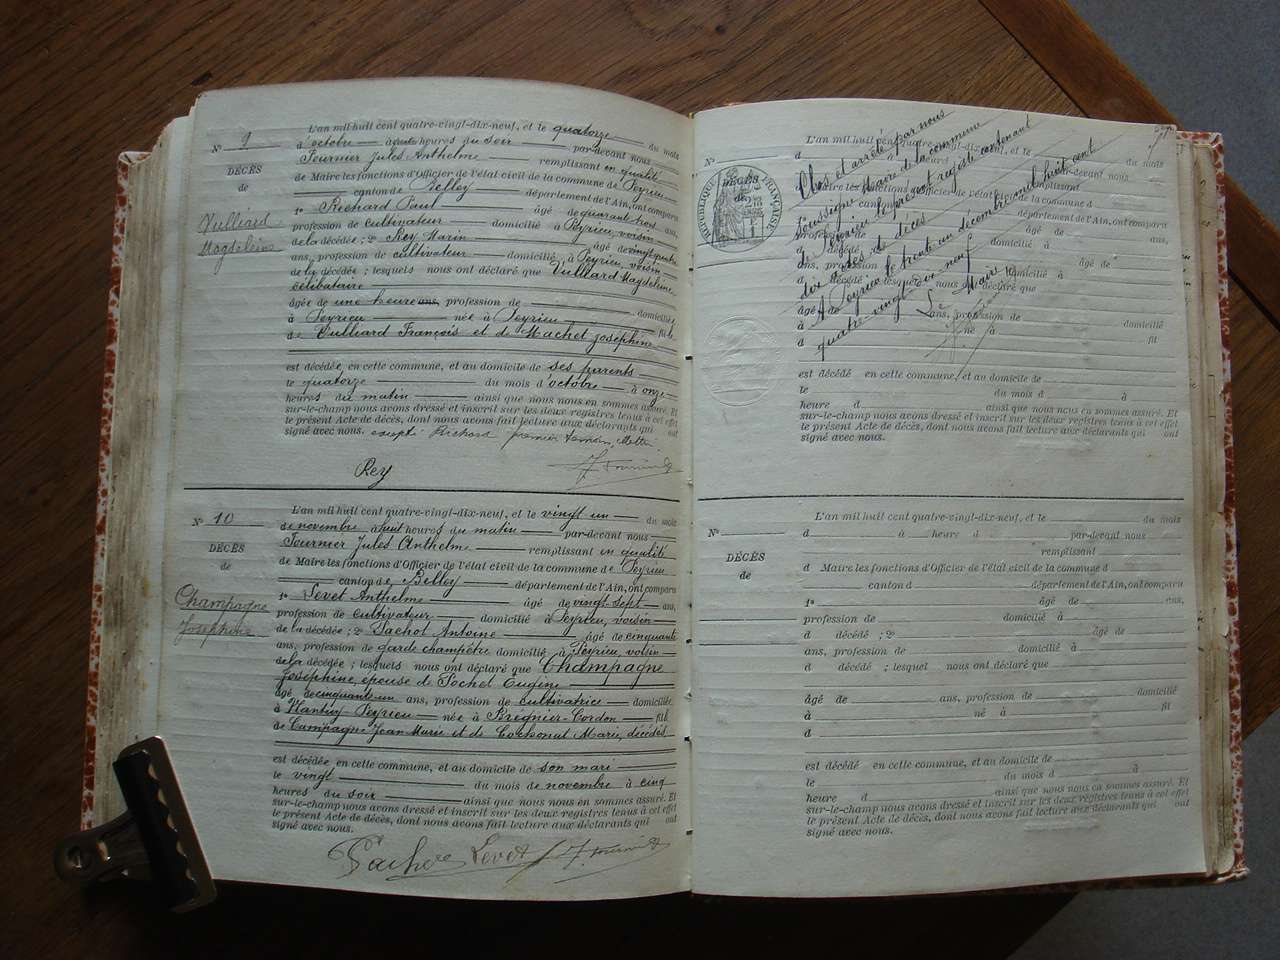 N° 9
DÉCÈS
de
Vulliard
Magdeleine
L'an mil huit cent quatre-vingt-dix-neuf, et le quatorze du mois
d'octobre à quatre heures du soir par-devant nous
Fournier Jules Anthelme remplissant en qualité
de Maire les fonctions d'Officier de l'état civil de la commune de Peyrieu
canton de Belley département de l'Ain, ont comparu
1° Richard Paul âgé de quarante trois ans,
profession de cultivateur domicilié à Peyrieu, voisin
de la décédée ; 2° Rey Marin âgé de vingt quatre
ans, profession de cultivateur domicilié à Peyrieu, voisin
de la décédée ; lesquels nous ont déclaré que Vulliard Magdeleine
célibataire
âgée de une heure ans, profession de domiciliée
à Peyrieu née à Peyrieu fille
de Vulliard François et de Machet Joséphine
est décédée en cette commune, et au domicile de ses parents
le quatorze du mois d'octobre à onze
heures du matin ainsi que nous nous en sommes assuré. Et
sur-le-champ nous avons dressé et inscrit sur les deux registres tenus à cet effet
le présent Acte de décès, dont nous avons fait lecture aux déclarants qui ont
signé avec nous. excepté Richard premier témoin,
Rey J. Fournier
N° 10
DÉCÈS
de
Champagne
Joséphine
L'an mil huit cent quatre-vingt-dix-neuf, et le vingt un du mois
de novembre à huit heures du matin par-devant nous
Fournier Jules Anthelme remplissant en qualité
de Maire les fonctions d'Officier de l'état civil de la commune de Peyrieu
canton de Belley département de l'Ain, ont comparu
1° Levet Anthelme âgé de vingt sept ans,
profession de cultivateur domicilié à Peyrieu, voisin
de la décédée ; 2° Pachot Antoine âgé de cinquante
ans, profession de garde champêtre domicilié à Peyrieu, voisin
de la décédée ; lesquels nous ont déclaré que Champagne
Joséphine, épouse de Pochet Eugène
âgé de cinquante un ans, profession de cultivatrice domiciliée
à Peyrieu née à Brégnier-Cordon fille
de Campagne Jean Marie et de Marie, décédés
est décédée en cette commune, et au domicile de son mari
le vingt du mois de novembre à cinq
heures du soir ainsi que nous nous en sommes assuré. Et
sur-le-champ nous avons dressé et inscrit sur les deux registres tenus à cet effet
le présent Acte de décès, dont nous avons fait lecture aux déclarants qui ont
signé avec nous.
Levet J. Fournier
N°
DÉCÈS
de
RÉPUBLIQUE FRANÇAISE
L'an mil huit cent quatre-vingt-dix-neuf, et le du mois
d à heure d par-devant nous
remplissant
d Maire les fonctions d'Officier de l'état civil de la commune d
canton d département de l'Ain, ont comparu
1° âgé de ans,
profession de domicilié à
d décédé ; 2° âgé de
ans, profession de domicilié à
d décédé ; lesquels nous ont déclaré que
âgé de ans, profession de domicilié
à né à fil
d
Clos et arrêté par nous
soussigné Maire de la commune
de Peyrieu le présent registre contenant
dix actes de décès
A Peyrieu le trente un décembre mil huit cent
quatre-vingt-dix neuf
Le Maire
est décédé en cette commune, et au domicile de
le du mois d à
heure d ainsi que nous nous en sommes assuré. Et
sur-le-champ nous avons dressé et inscrit sur les deux registres tenus à cet effet
le présent Acte de décès, dont nous avons fait lecture aux déclarants qui ont
signé avec nous.
N°
DÉCÈS
de
L'an mil huit cent quatre-vingt-dix-neuf, et le du mois
d à heure d par-devant nous
remplissant
d Maire les fonctions d'Officier de l'état civil de la commune d
canton d département de l'Ain, ont comparu
1° âgé de ans,
profession de domicilié à
d décédé ; 2° âgé de
ans, profession de domicilié à
d décédé ; lesquel nous ont déclaré que
âgé de ans, profession de domicilié
à né à fil
d
est décédé en cette commune, et au domicile de
le du mois d à
heure d ainsi que nous nous en sommes assuré. Et
sur-le-champ nous avons dressé et inscrit sur les deux registres tenus à cet effet
le présent Acte de décès, dont nous avons fait lecture aux déclarants qui ont
signé avec nous.